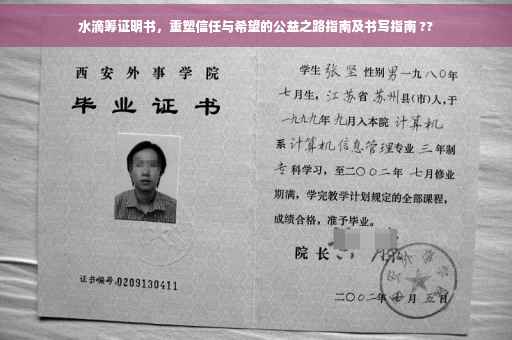 水滴筹证明书，重塑信任与希望的公益之路指南及书写指南 ??
西安外事学院
毕业证书
证书编号:0209130411
学生 张坚 性别 男 一九八〇年
七月生，江苏省 苏州 县(市)人,于
一九九九年 九月入本院 计算机
系 计算机信息管理专业 三 年制
专 科学习，至二〇〇二年 七月修业
期满，学完教学计划规定的全部课程，
成绩合格，准予毕业。
院长
二〇〇二年 七 月 五 日